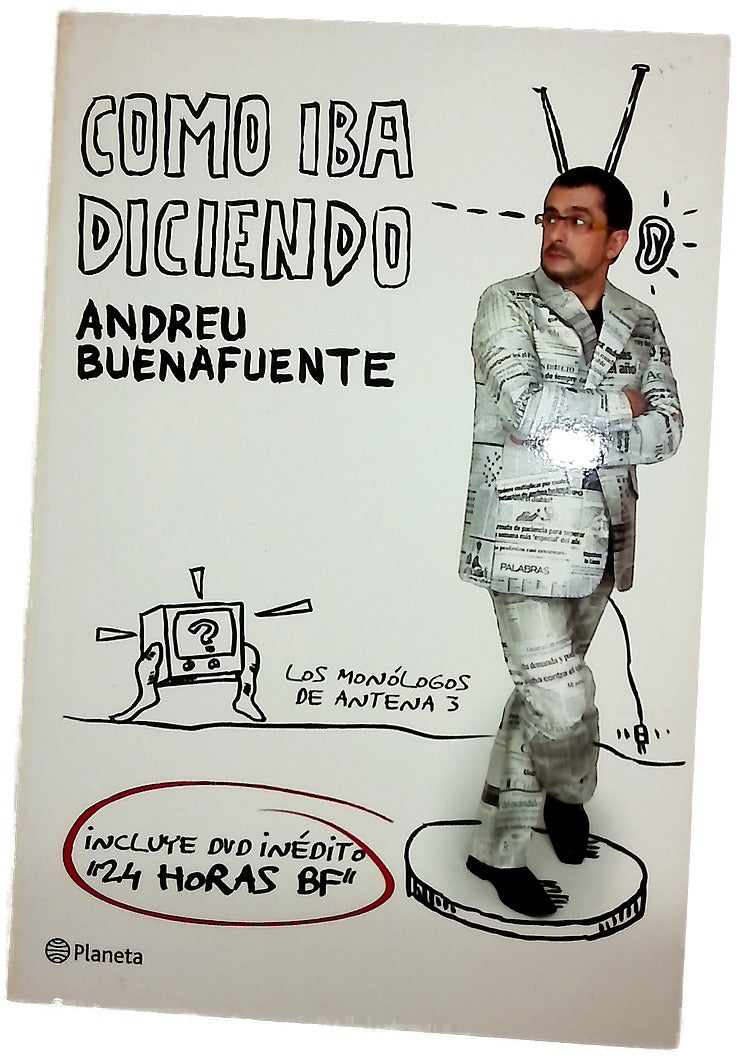 COMO IBA
DICIENDO
ANDREU
BUENAFUENTE
?
LOS MONÓLOGOS
DE ANTENA 3
PALABRAS
INCLUYE DVD INÉDITO
"24 HORAS BF"
Planeta